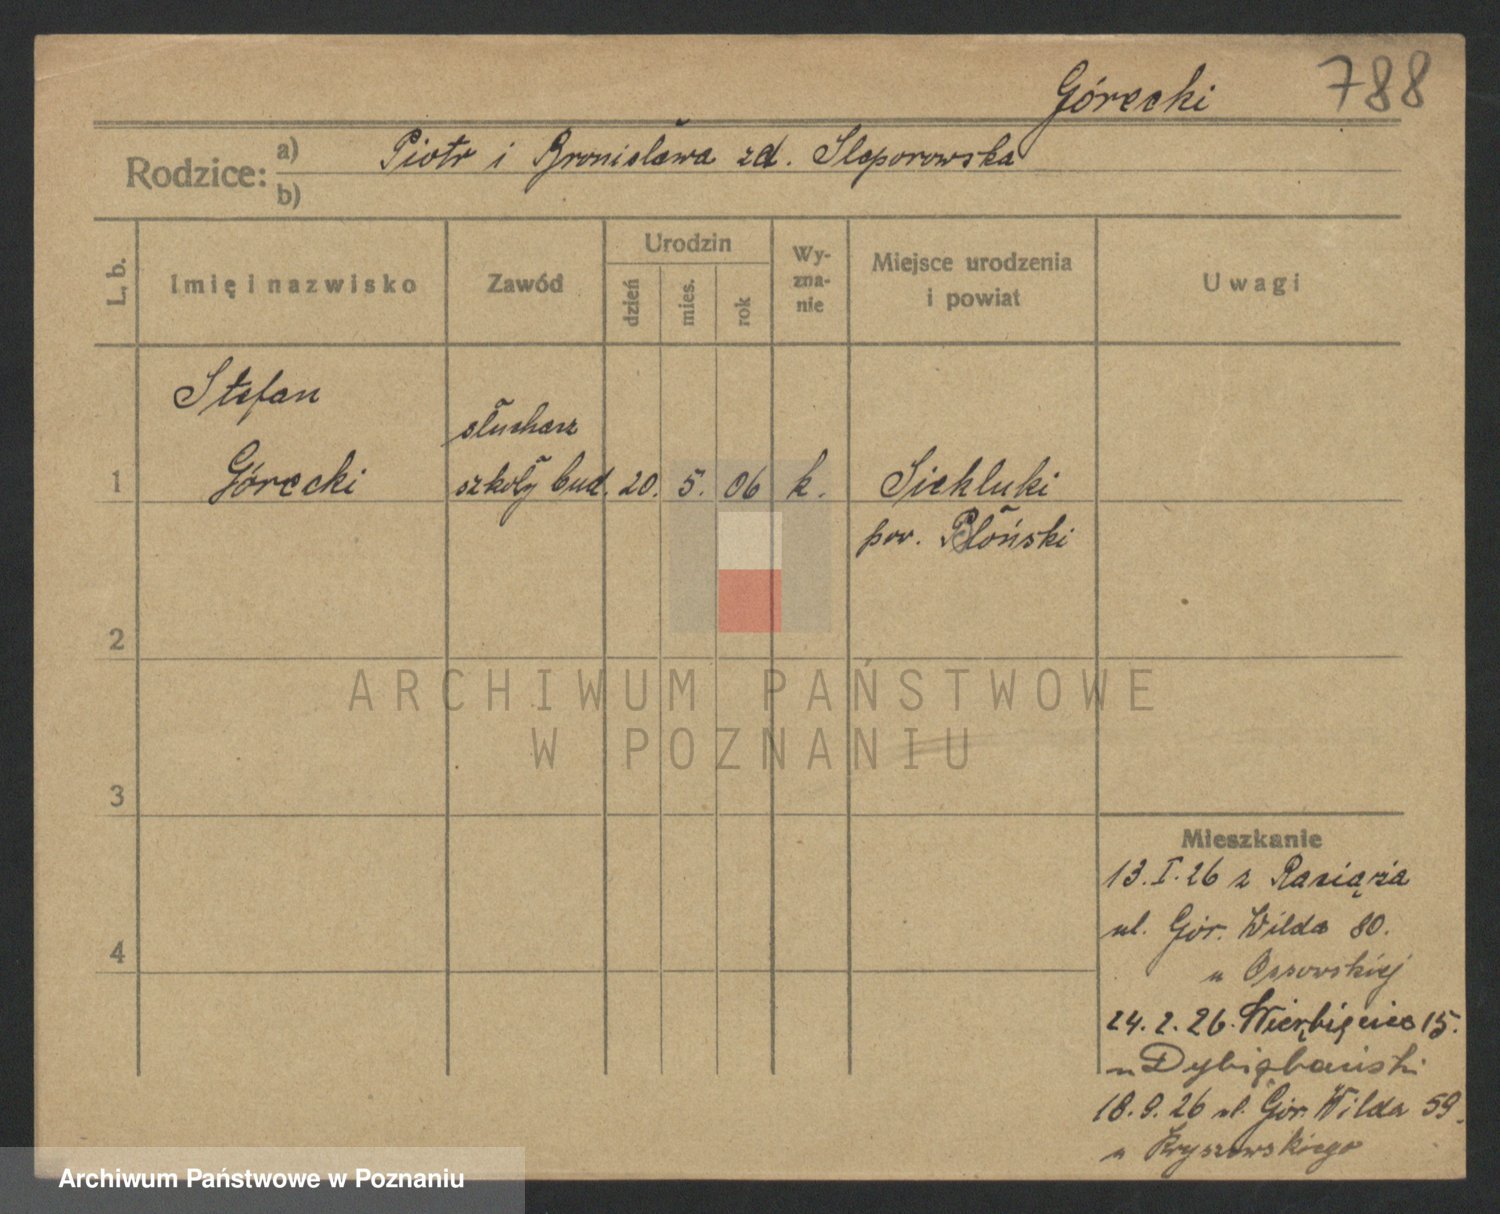 Górecki 788
Rodzice: a) Piotr i Bronisława zd. Sleporowska
b)
L. b.
Imię i nazwisko
Zawód
Urodzin
dzień
mies.
rok
Wy-
zna-
nie
Miejsce urodzenia
i powiat
Uwagi
Stefan
słuchacz
1 Górecki szkoły bud. 20. 5. 06 k. Siekluki
pow. Płoński
2
3
4
Mieszkanie
13.I.26 z Raciąża
ul. Gór. Wilda 80.
u Ossowskiej
24.2.26. Wierzbięcice 15.
u
18.9.26 ul. Gór. Wilda 59.
u Kryszewskiego
ARCHIWUM PAŃSTWOWE
W POZNANIU
Archiwum Państwowe w Poznaniu